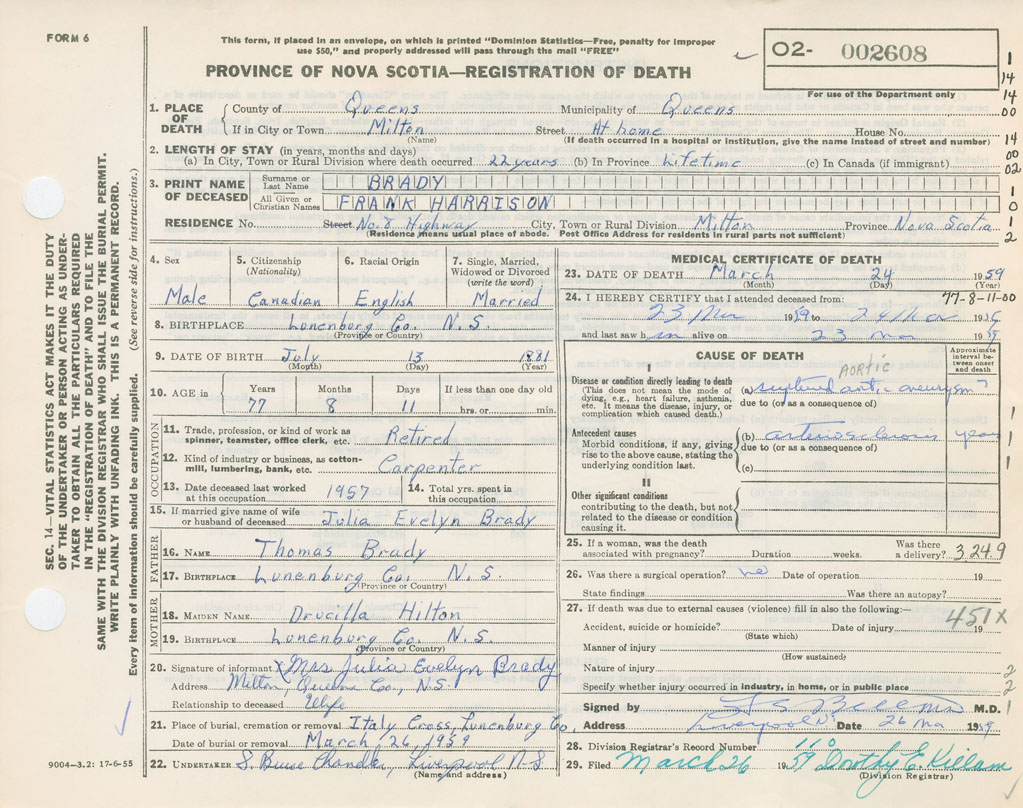 FORM 6
This form, if placed in an envelope, on which is printed "Dominion Statistics—Free, penalty for improper
use $50," and properly addressed will pass through the mail "FREE"
PROVINCE OF NOVA SCOTIA—REGISTRATION OF DEATH
02- 002608
For use of the Department only
1. PLACE OF DEATH
County of Queens Municipality of Queens
If in City or Town Milton Street At home House No.
(Name) (If death occurred in a hospital or institution, give the name instead of street and number)
2. LENGTH OF STAY (in years, months and days)
(a) In City, Town or Rural Division where death occurred 22 years (b) In Province Lifetime (c) In Canada (if immigrant)
3. PRINT NAME OF DECEASED
Surname or Last Name BRADY
All Given or Christian Names FRANK HARRISON
RESIDENCE No. Street No. 8 Highway City, Town or Rural Division Milton Province Nova Scotia
(Residence means usual place of abode. Post Office Address for residents in rural parts not sufficient)
4. Sex Male
5. Citizenship (Nationality) Canadian
6. Racial Origin English
7. Single, Married, Widowed or Divorced (write the word) Married
8. BIRTHPLACE Lunenburg Co. N. S.
(Province or Country)
9. DATE OF BIRTH July 13 1881
(Month) (Day) (Year)
10. AGE in Years 77 Months 8 Days 11 If less than one day old hrs. or min.
OCCUPATION
11. Trade, profession, or kind of work as spinner, teamster, office clerk, etc. Retired
12. Kind of industry or business, as cotton-mill, lumbering, bank, etc. Carpenter
13. Date deceased last worked at this occupation 1957
14. Total yrs. spent in this occupation
15. If married give name of wife or husband of deceased Julia Evelyn Brady
FATHER
16. NAME Thomas Brady
17. BIRTHPLACE Lunenburg Co. N. S.
(Province or Country)
MOTHER
18. MAIDEN NAME Drucilla Hilton
19. BIRTHPLACE Lunenburg Co. N. S.
(Province or Country)
20. Signature of informant X Mrs Julia Evelyn Brady
Address Milton, Queens Co., N.S.
Relationship to deceased Wife
21. Place of burial, cremation or removal Italy Cross, Lunenburg Co,
Date of burial or removal March 26, 1959
22. UNDERTAKER S. Bruce Chandler, Liverpool N.S.
(Name and address)
MEDICAL CERTIFICATE OF DEATH
23. DATE OF DEATH March 24 1959
(Month) (Day) (Year)
24. I HEREBY CERTIFY that I attended deceased from: 77-8-11-00
23 Mar 19 to 24 Mar 19
and last saw h alive on 23 19
CAUSE OF DEATH
Approximate interval between onset and death
I
AORTIC
Disease or condition directly leading to death
(This does not mean the mode of dying, e.g., heart failure, asthenia, etc. It means the disease, injury, or complication which caused death.)
(a) ruptured aortic aneurysm ?
due to (or as a consequence of)
Antecedent causes
Morbid conditions, if any, giving rise to the above cause, stating the underlying condition last.
(b) arteriosclerosis years
due to (or as a consequence of)
(c)
II
Other significant conditions
contributing to the death, but not related to the disease or condition causing it.
25. If a woman, was the death associated with pregnancy? Duration weeks. Was there a delivery? 3249
26. Was there a surgical operation? no Date of operation 19
State findings Was there an autopsy?
27. If death was due to external causes (violence) fill in also the following:— 451X
Accident, suicide or homicide? Date of injury 19
(State which)
Manner of injury
(How sustained?
Nature of injury
Specify whether injury occurred in industry, in home, or in public place
Signed by M.D.
Address Liverpool Date 26 Mar 1959
28. Division Registrar's Record Number 110
29. Filed March 26 1959 Dorothy E. Killam
(Division Registrar)
9004—3.2: 17-6-55
SEC. 14—VITAL STATISTICS ACT MAKES IT THE DUTY
OF THE UNDERTAKER OR PERSON ACTING AS UNDER-
TAKER TO OBTAIN ALL THE PARTICULARS REQUIRED
IN THE "REGISTRATION OF DEATH" AND TO FILE THE
SAME WITH THE DIVISION REGISTRAR WHO SHALL ISSUE THE BURIAL PERMIT.
WRITE PLAINLY WITH UNFADING INK. THIS IS A PERMANENT RECORD.
Every item of information should be carefully supplied. (See reverse side for instructions.)
1
14
14
00
14
00
02
1
0
1
2
1
1
1
2
2
1